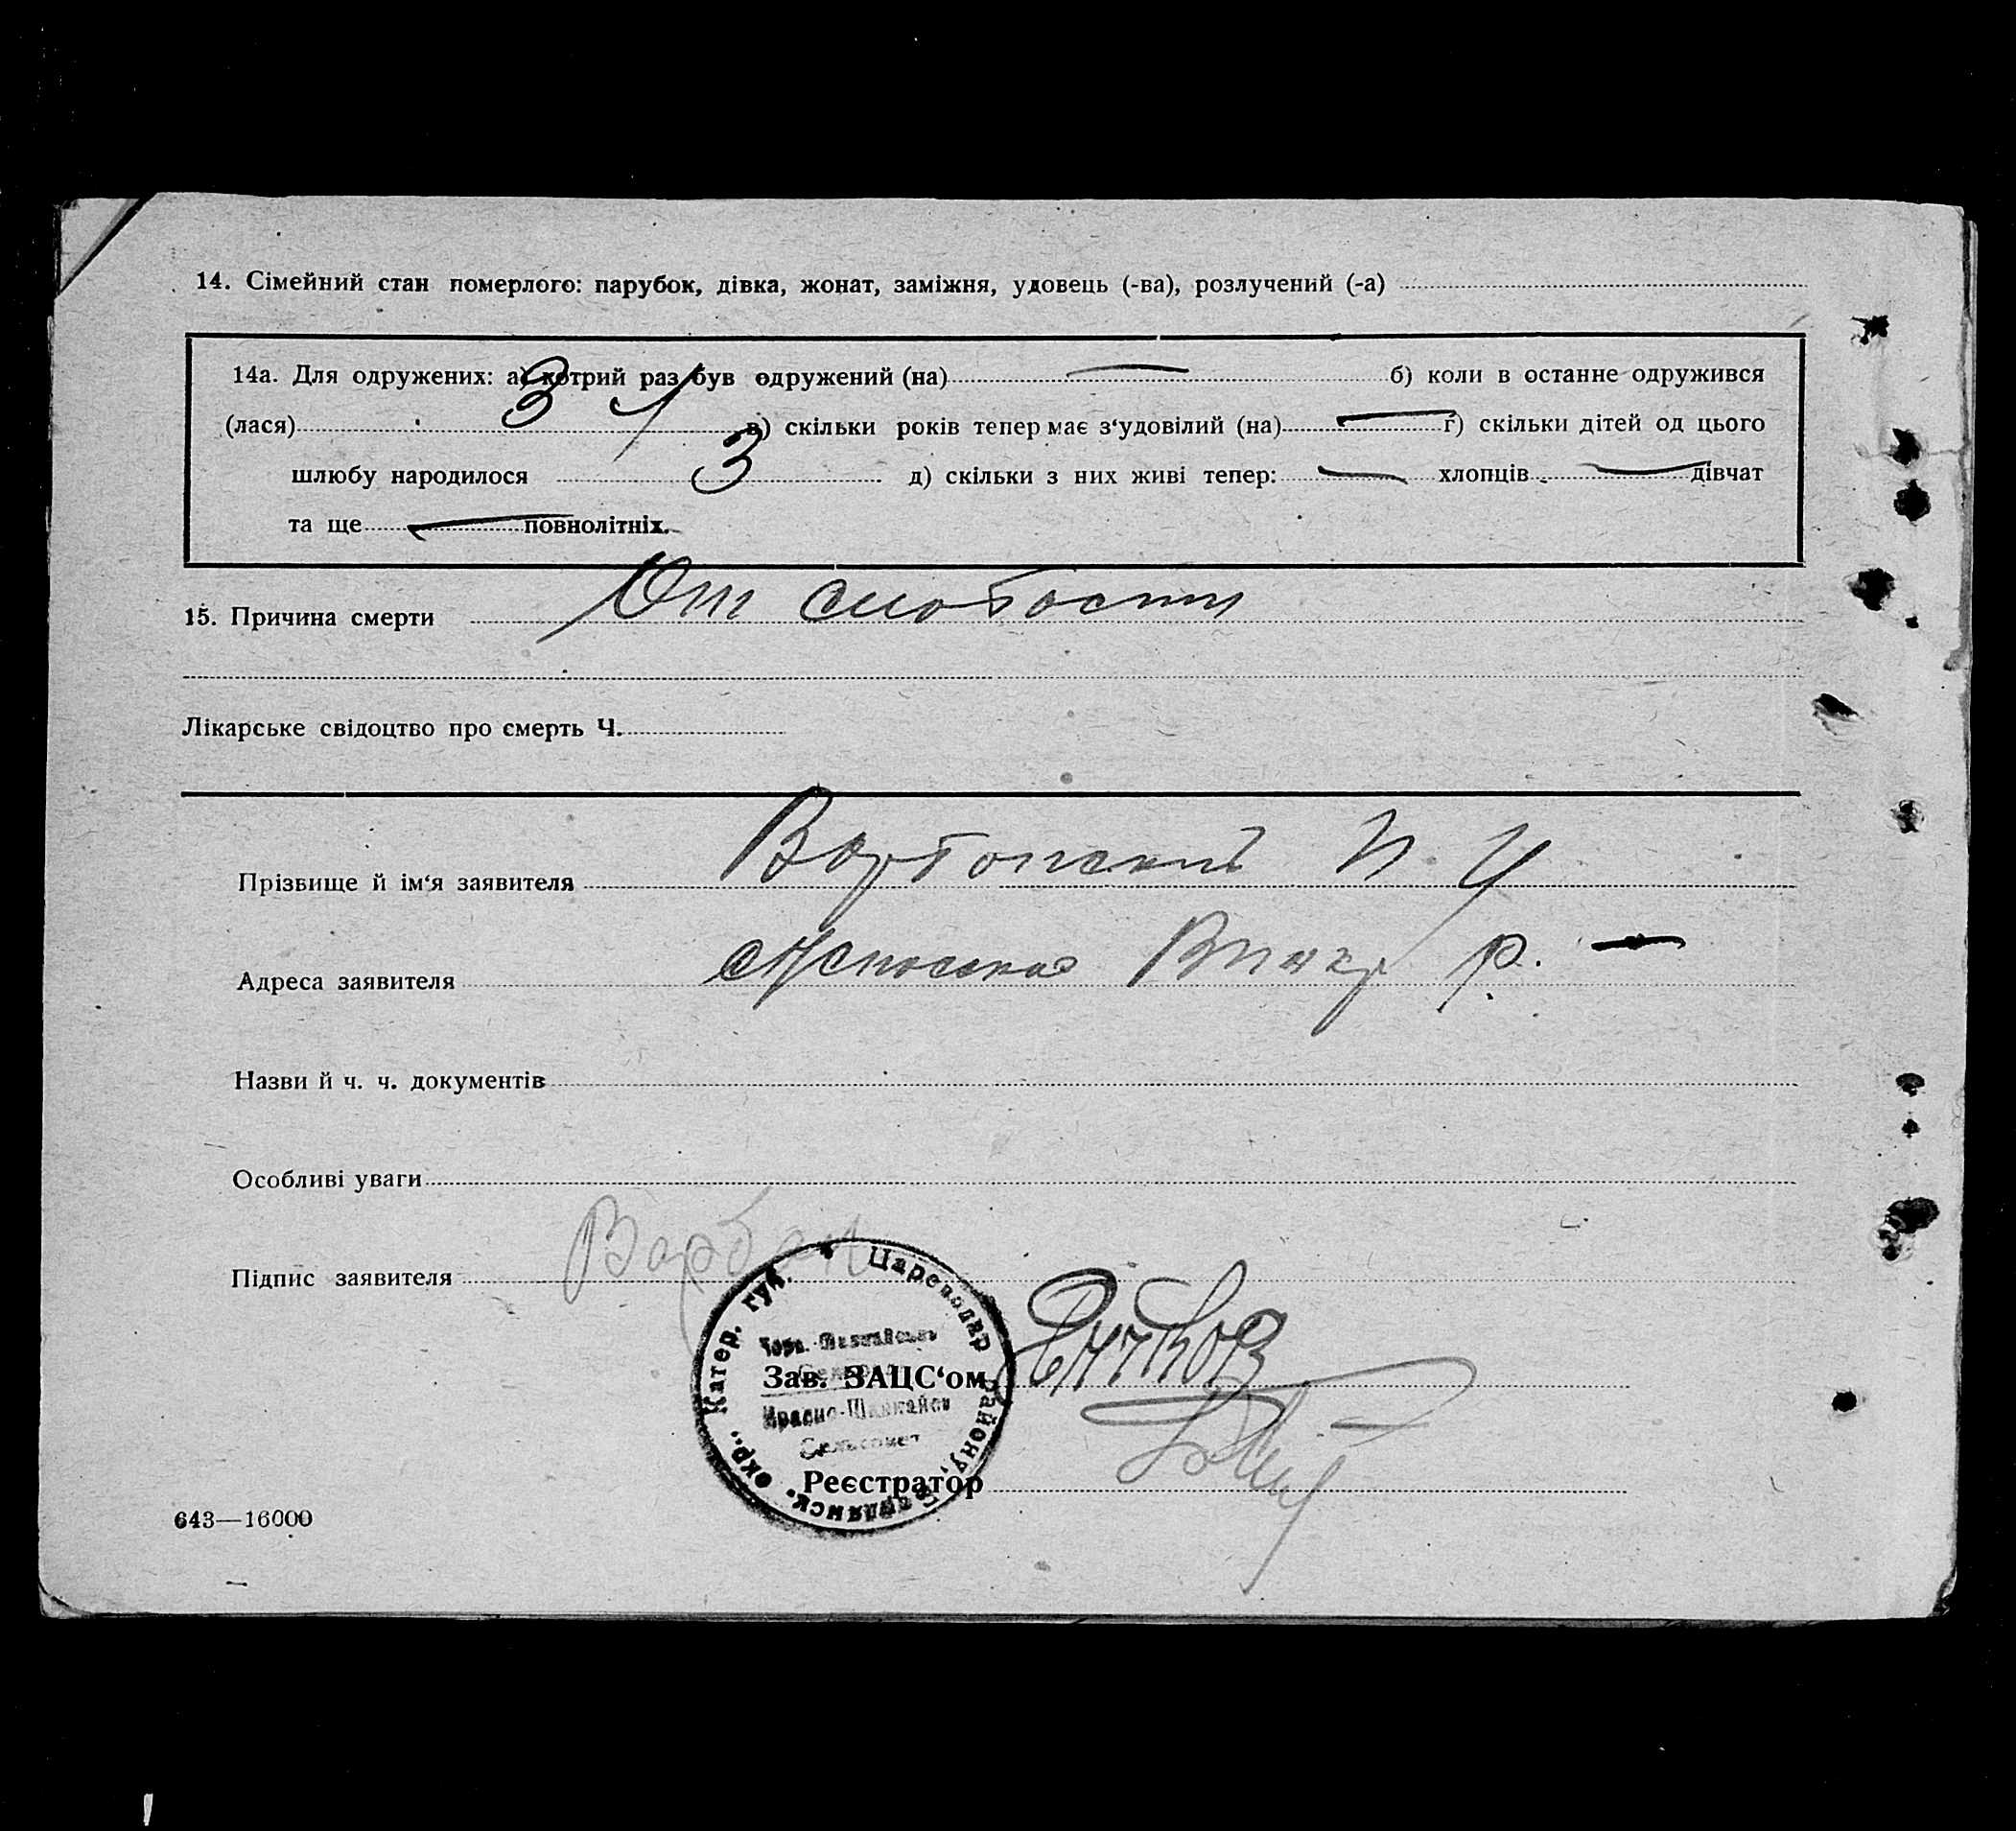 14. Сімейний стан померлого: парубок, дівка, жонат, заміжня, удовець (-ва), розлучений (-а)
14а. Для одружених: а) котрий раз був одружений (на) — б) коли в останне одружився
(лася) 3 / в) скільки років тепер має з‘удовілий (на) — г) скільки дітей од цього
шлюбу народилося 3 д) скільки з них живі тепер: — хлопців — дівчат
та ще — повнолітніх.
15. Причина смерти От слабости
Лікарське свідоцтво про смерть Ч.
Прізвище й ім‘я заявителя
Адреса заявителя Р. —
Назви й ч. ч. документів
Особливі уваги
Підпис заявителя Варбан
Катер. губ. * Цареводар району, Бердянск. окр.,
Зав. ЗАЦС‘ом
Красно-
Реєстратор
643—16000